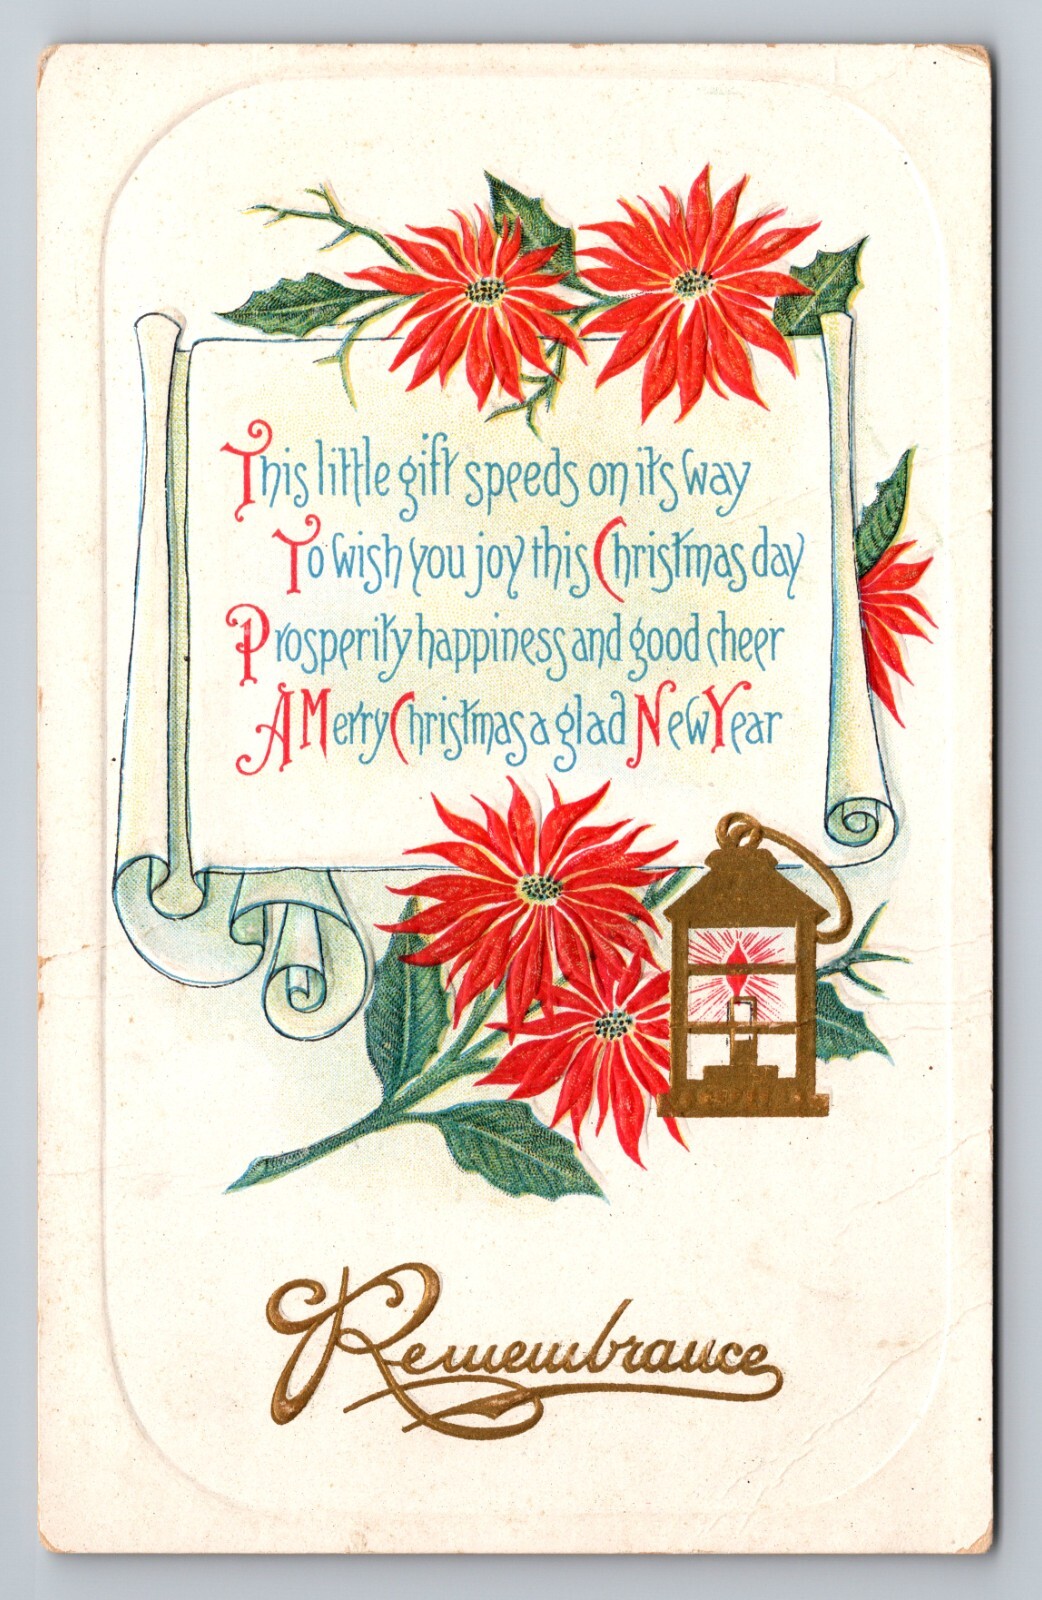 This little gift speeds on its way
To wish you joy this Christmas day
Prosperity happiness and good cheer
A Merry Christmas a glad New Year
Remembrance